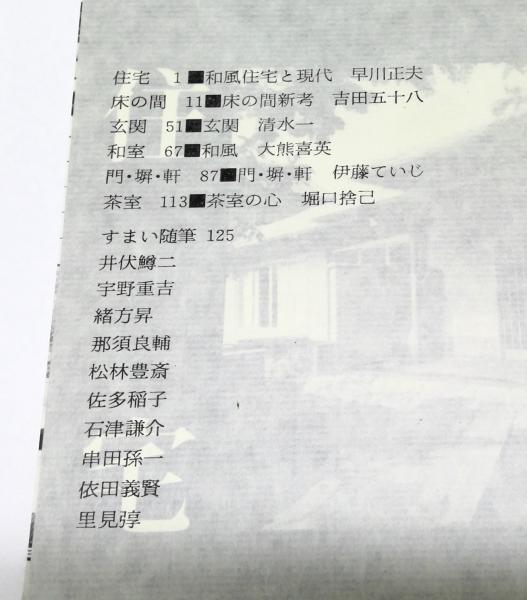 住宅 1■和風住宅と現代 早川正夫
床の間 11■床の間新考 吉田五十八
玄関 51■玄関 清水一
和室 67■和風 大熊喜英
門・塀・軒 87■門・塀・軒 伊藤ていじ
茶室 113■茶室の心 堀口捨己
すまい随筆 125
井伏鱒二
宇野重吉
緒方昇
那須良輔
松林豊斎
佐多稲子
石津謙介
串田孫一
依田義賢
里見弴
住
宅